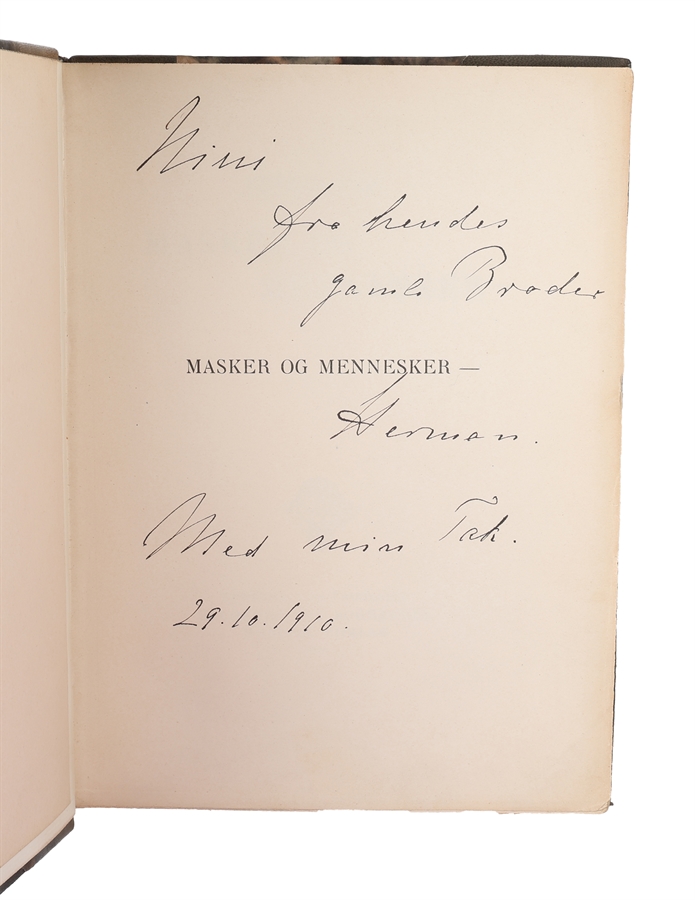 Nini
fra hendes
gamle Broder
MASKER OG MENNESKER —
Herman.
Med min Tak.
29.10.1910.